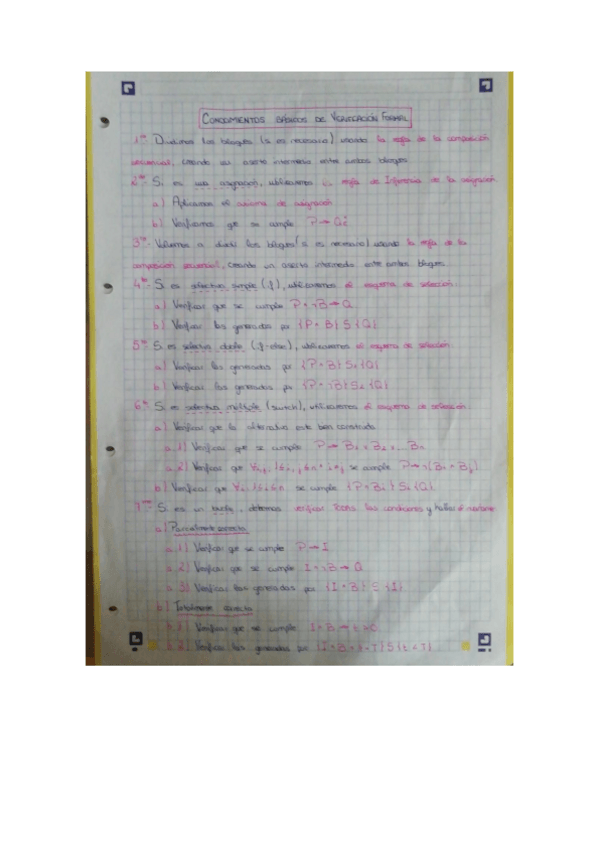 CONOCIMIENTOS BÁSICOS DE VERIFICACIÓN FORMAL
1º- Dividimos los bloques (si es necesario) usando la regla de la composición
secuencial, creando un aserto intermedio entre ambos bloques.
2º- Si es una asignación, utilizaremos la regla de Inferencia de la asignación.
a) Aplicamos el axioma de asignación
b) Verificamos que se cumple P→Q
3º- Volvemos a dividir los bloques (si es necesario) usando la regla de la
composición secuencial, creando un aserto intermedio entre ambos bloques.
4º- Si es selectiva simple (if), utilizaremos el esquema de selección.
a) Verificar que se cumple P∧¬B→Q
b) Verificar los generados por {P∧B} S {Q}
5º- Si es selectiva doble (if-else), utilizaremos el esquema de selección
a) Verificar los generados por {P∧B} S₁ {Q}
b) Verificar los generados por {P∧¬B} S₂ {Q}
6º- Si es selectiva múltiple (switch), utilizaremos el esquema de selección.
a) Verificar que la alternativa este bien construida
a.1) Verificar que se cumple P→B₁ B₂ ... Bₙ
a.2) Verificar que se cumple P→¬(Bᵢ∧Bⱼ)
b) Verificar que se cumple {P∧Bᵢ} Sᵢ {Q}
7º- Si es un bucle, debemos verificar todas las condiciones y hallar el
a) Parcialmente correcto
a.1) Verificar que se cumple P→I
a.2) Verificar que se cumple I∧¬B→Q
a.3) Verificar los generados por {I∧B} S {I}
b) Totalmente correcto
b.1) Verificar que se cumple I∧B→t>0
b.2) Verificar los generados por {I∧B∧t=T} S {t<T}